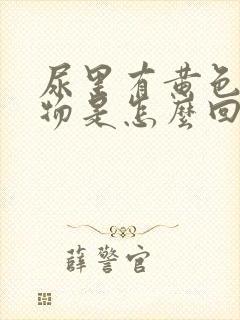 尿里有黄色
物是怎麽回
薛警官